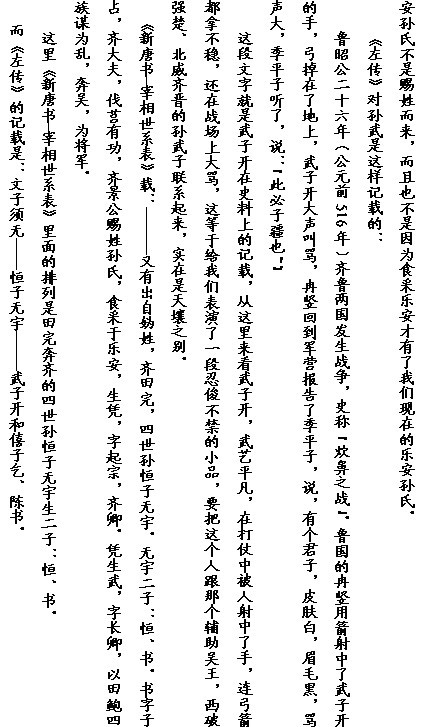 安孙氏不是赐姓而来，而且也不是因为食采乐安才有了我们现在的乐安孙氏。
《左传》对孙武是这样记载的：
鲁昭公二十六年（公元前516年）齐鲁两国发生战争，史称“炊鼻之战”。鲁国的冉竖用箭射中了武子开
的手，弓掉在了地上，武子开大声叫骂，冉竖回到军营报告了季平子，说，有个君子，皮肤白，眉毛黑，骂
声大，季平子听了，说：“此必子疆也！”
这段文字就是武子开在史料上的记载，从这里来看武子开，武艺平凡，在打仗中被人射中了手，连弓箭
都拿不稳，还在战场上大骂，这等于给我们表演了一段忍俊不禁的小品，要把这个人跟那个辅助吴王，西破
强楚、北威齐晋的孙武子联系起来，实在是天壤之别。
《新唐书—宰相世系表》载：——又有出自妫姓，齐田完，四世孙恒子无宇。无宇二子：恒、书。书字子
占，齐大夫，伐莒有功，齐景公赐姓孙氏，食采于乐安，生凭，字起宗，齐卿。凭生武，字长卿，以田鲍四
族谋为乱，奔吴，为将军。
这里《新唐书—宰相世系表》里面的排列是田完奔齐的四世孙恒子无宇生二子：恒、书。
而《左传》的记载是：文子须无——恒子无宇——武子开和僖子乞、陈书。